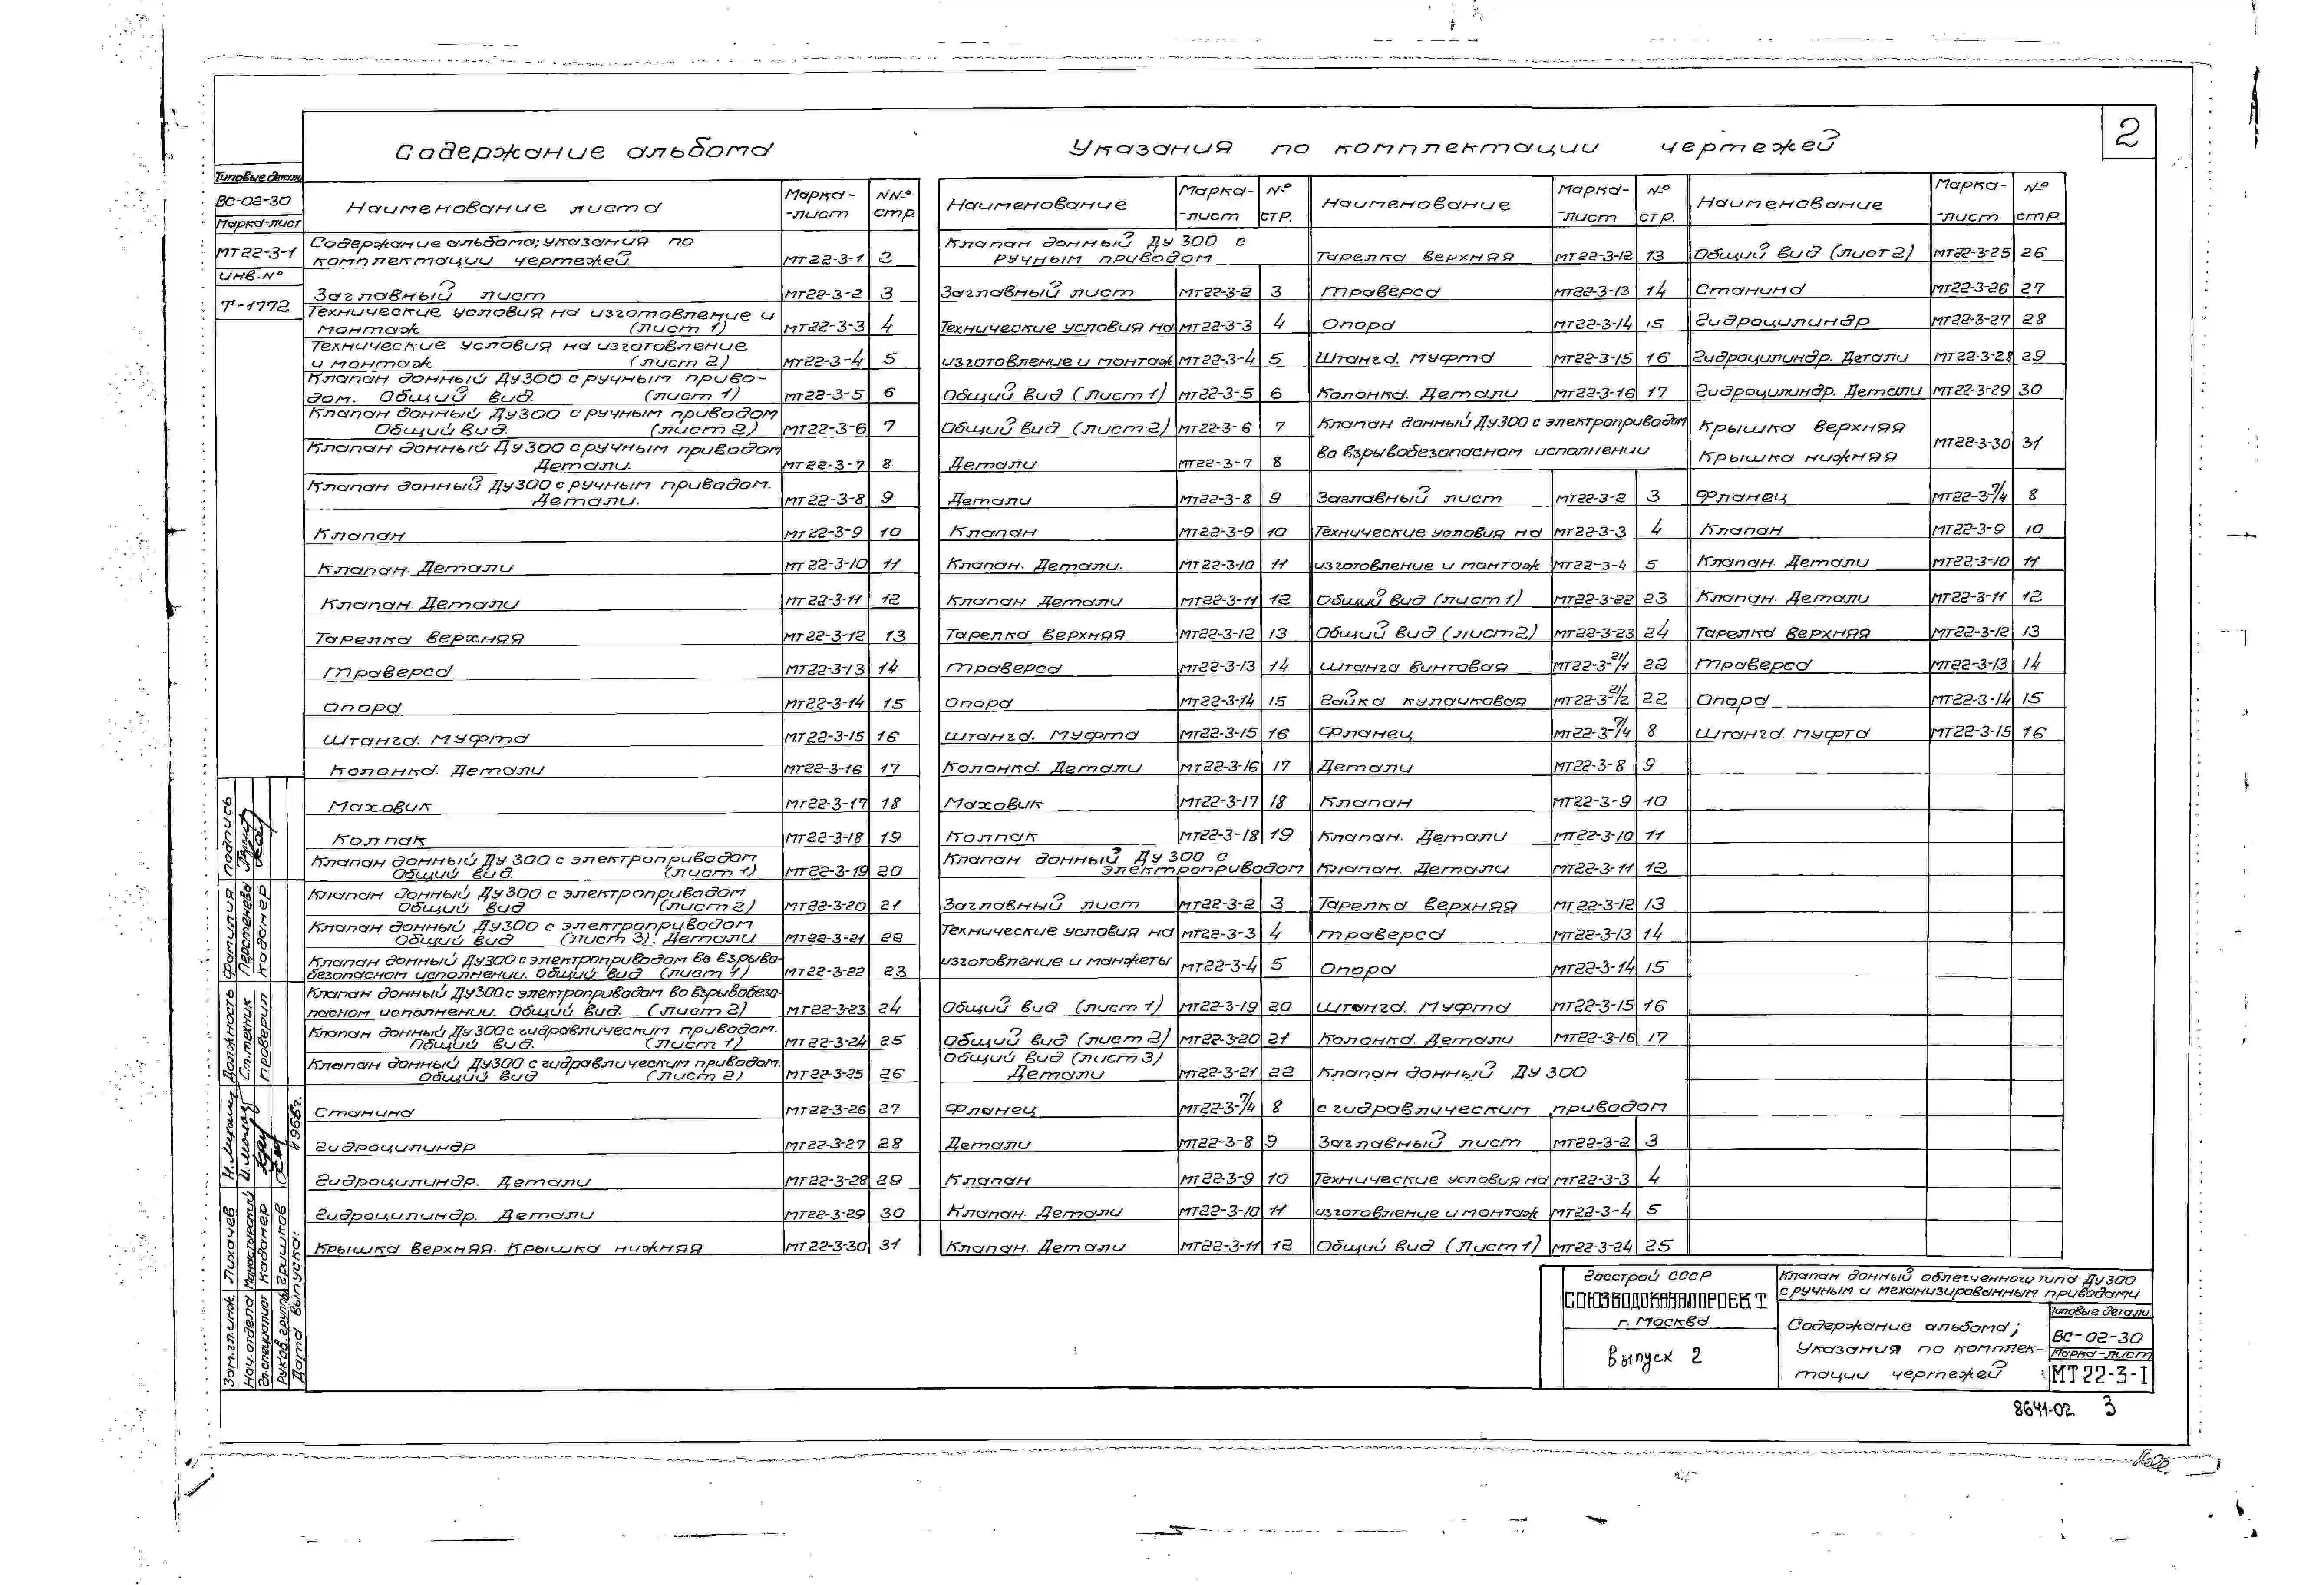 2
Содержание альбома
Наименование листа | Марка-лист | NN° стр.
Содержание альбома; указания по комплектации чертежей | МТ22-3-1 | 2
Заглавный лист | МТ22-3-2 | 3
Технические условия на изготовление и монтаж (лист 1) | МТ22-3-3 | 4
Технические условия на изготовление и монтаж (лист 2) | МТ22-3-4 | 5
Клапан донный Ду300 с ручным приводом. Общий вид. (лист 1) | МТ22-3-5 | 6
Клапан донный Ду300 с ручным приводом Общий вид. (лист 2) | МТ22-3-6 | 7
Клапан донный Ду300 с ручным приводом Детали. | МТ22-3-7 | 8
Клапан донный Ду300 с ручным приводом. Детали. | МТ22-3-8 | 9
Клапан | МТ22-3-9 | 10
Клапан. Детали | МТ22-3-10 | 11
Клапан. Детали | МТ22-3-11 | 12
Тарелка верхняя | МТ22-3-12 | 13
Траверса | МТ22-3-13 | 14
Опора | МТ22-3-14 | 15
Штанга. Муфта | МТ22-3-15 | 16
Колонка. Детали | МТ22-3-16 | 17
Маховик | МТ22-3-17 | 18
Колпак | МТ22-3-18 | 19
Клапан донный Ду300 с электроприводом Общий вид. (лист 1) | МТ22-3-19 | 20
Клапан донный Ду300 с электроприводом Общий вид (лист 2) | МТ22-3-20 | 21
Клапан донный Ду300 с электроприводом Общий вид (лист 3). Детали | МТ22-3-21 | 22
Клапан донный Ду300 с электроприводом во взрывобезопасном исполнении. Общий вид (лист 1) | МТ22-3-22 | 23
Клапан донный Ду300 с электроприводом во взрывобезопасном исполнении. Общий вид. (лист 2) | МТ22-3-23 | 24
Клапан донный Ду300 с гидравлическим приводом. Общий вид. (лист 1) | МТ22-3-24 | 25
Клапан донный Ду300 с гидравлическим приводом. Общий вид (лист 2) | МТ22-3-25 | 26
Станина | МТ22-3-26 | 27
Гидроцилиндр | МТ22-3-27 | 28
Гидроцилиндр. Детали | МТ22-3-28 | 29
Гидроцилиндр. Детали | МТ22-3-29 | 30
Крышка верхняя. Крышка нижняя | МТ22-3-30 | 31
Указания по комплектации чертежей
Наименование | Марка-лист | N° стр.
Клапан донный Ду 300 с ручным приводом
Заглавный лист | МТ22-3-2 | 3
Технические условия на | МТ22-3-3 | 4
изготовление и монтаж | МТ22-3-4 | 5
Общий вид (лист 1) | МТ22-3-5 | 6
Общий вид (лист 2) | МТ22-3-6 | 7
Детали | МТ22-3-7 | 8
Детали | МТ22-3-8 | 9
Клапан | МТ22-3-9 | 10
Клапан. Детали. | МТ22-3-10 | 11
Клапан Детали | МТ22-3-11 | 12
Тарелка верхняя | МТ22-3-12 | 13
Траверса | МТ22-3-13 | 14
Опора | МТ22-3-14 | 15
Штанга. Муфта | МТ22-3-15 | 16
Колонка. Детали | МТ22-3-16 | 17
Маховик | МТ22-3-17 | 18
Колпак | МТ22-3-18 | 19
Клапан донный Ду 300 с электроприводом
Заглавный лист | МТ22-3-2 | 3
Технические условия на | МТ22-3-3 | 4
изготовление и манжеты | МТ22-3-4 | 5
Общий вид (лист 1) | МТ22-3-19 | 20
Общий вид (лист 2) | МТ22-3-20 | 21
Общий вид (лист 3) Детали | МТ22-3-21 | 22
Фланец | МТ22-3-7/4 | 8
Детали | МТ22-3-8 | 9
Клапан | МТ22-3-9 | 10
Клапан. Детали | МТ22-3-10 | 11
Клапан. Детали | МТ22-3-11 | 12
Наименование | Марка-лист | N° стр.
Тарелка верхняя | МТ22-3-12 | 13
Траверса | МТ22-3-13 | 14
Опора | МТ22-3-14 | 15
Штанга. Муфта | МТ22-3-15 | 16
Колонка. Детали | МТ22-3-16 | 17
Клапан донный Ду300 с электроприводом
во взрывобезопасном исполнении
Заглавный лист | МТ22-3-2 | 3
Технические условия на | МТ22-3-3 | 4
изготовление и монтаж | МТ22-3-4 | 5
Общий вид (лист 1) | МТ22-3-22 | 23
Общий вид (лист 2) | МТ22-3-23 | 24
Штанга винтовая | МТ22-3-21/1 | 22
Гайка кулачковая | МТ22-3-21/2 | 22
Фланец | МТ22-3-7/4 | 8
Детали | МТ22-3-8 | 9
Клапан | МТ22-3-9 | 10
Клапан. Детали | МТ22-3-10 | 11
Клапан. Детали | МТ22-3-11 | 12
Тарелка верхняя | МТ22-3-12 | 13
Траверса | МТ22-3-13 | 14
Опора | МТ22-3-14 | 15
Штанга. Муфта | МТ22-3-15 | 16
Колонка. Детали | МТ22-3-16 | 17
Клапан донный Ду 300
с гидравлическим приводом
Заглавный лист | МТ22-3-2 | 3
Технические условия на | МТ22-3-3 | 4
изготовление и монтаж | МТ22-3-4 | 5
Общий вид (Лист 1) | МТ22-3-24 | 25
Наименование | Марка-лист | N° стр.
Общий вид (лист 2) | МТ22-3-25 | 26
Станина | МТ22-3-26 | 27
Гидроцилиндр | МТ22-3-27 | 28
Гидроцилиндр. Детали | МТ22-3-28 | 29
Гидроцилиндр. Детали | МТ22-3-29 | 30
Крышка верхняя Крышка нижняя | МТ22-3-30 | 31
Фланец | МТ22-3-7/4 | 8
Клапан | МТ22-3-9 | 10
Клапан. Детали | МТ22-3-10 | 11
Клапан. Детали | МТ22-3-11 | 12
Тарелка верхняя | МТ22-3-12 | 13
Траверса | МТ22-3-13 | 14
Опора | МТ22-3-14 | 15
Штанга. Муфта | МТ22-3-15 | 16
Типовые детали
ВС-02-30
Марка-лист
МТ22-3-1
Инв. N°
Т-1772
Должность Фамилия Подпись
Ст. техник Перстенева
Проверил Каданер
Зам. гл. инж. Лихачев
Нач. отдела Монастырский
Гл. специалист Каданер
Руков. группы Гришков
Дата выпуска: 1968г.
Госстрой СССР
СОЮЗВОДОКАНАЛПРОЕКТ
г. Москва
Выпуск 2
Клапан донный облегченного типа Ду 300
с ручным и механизированным приводами
Содержание альбома;
Указания по комплек-
тации чертежей
Типовые детали
ВС-02-30
Марка-лист
МТ22-3-I
8641-02 3